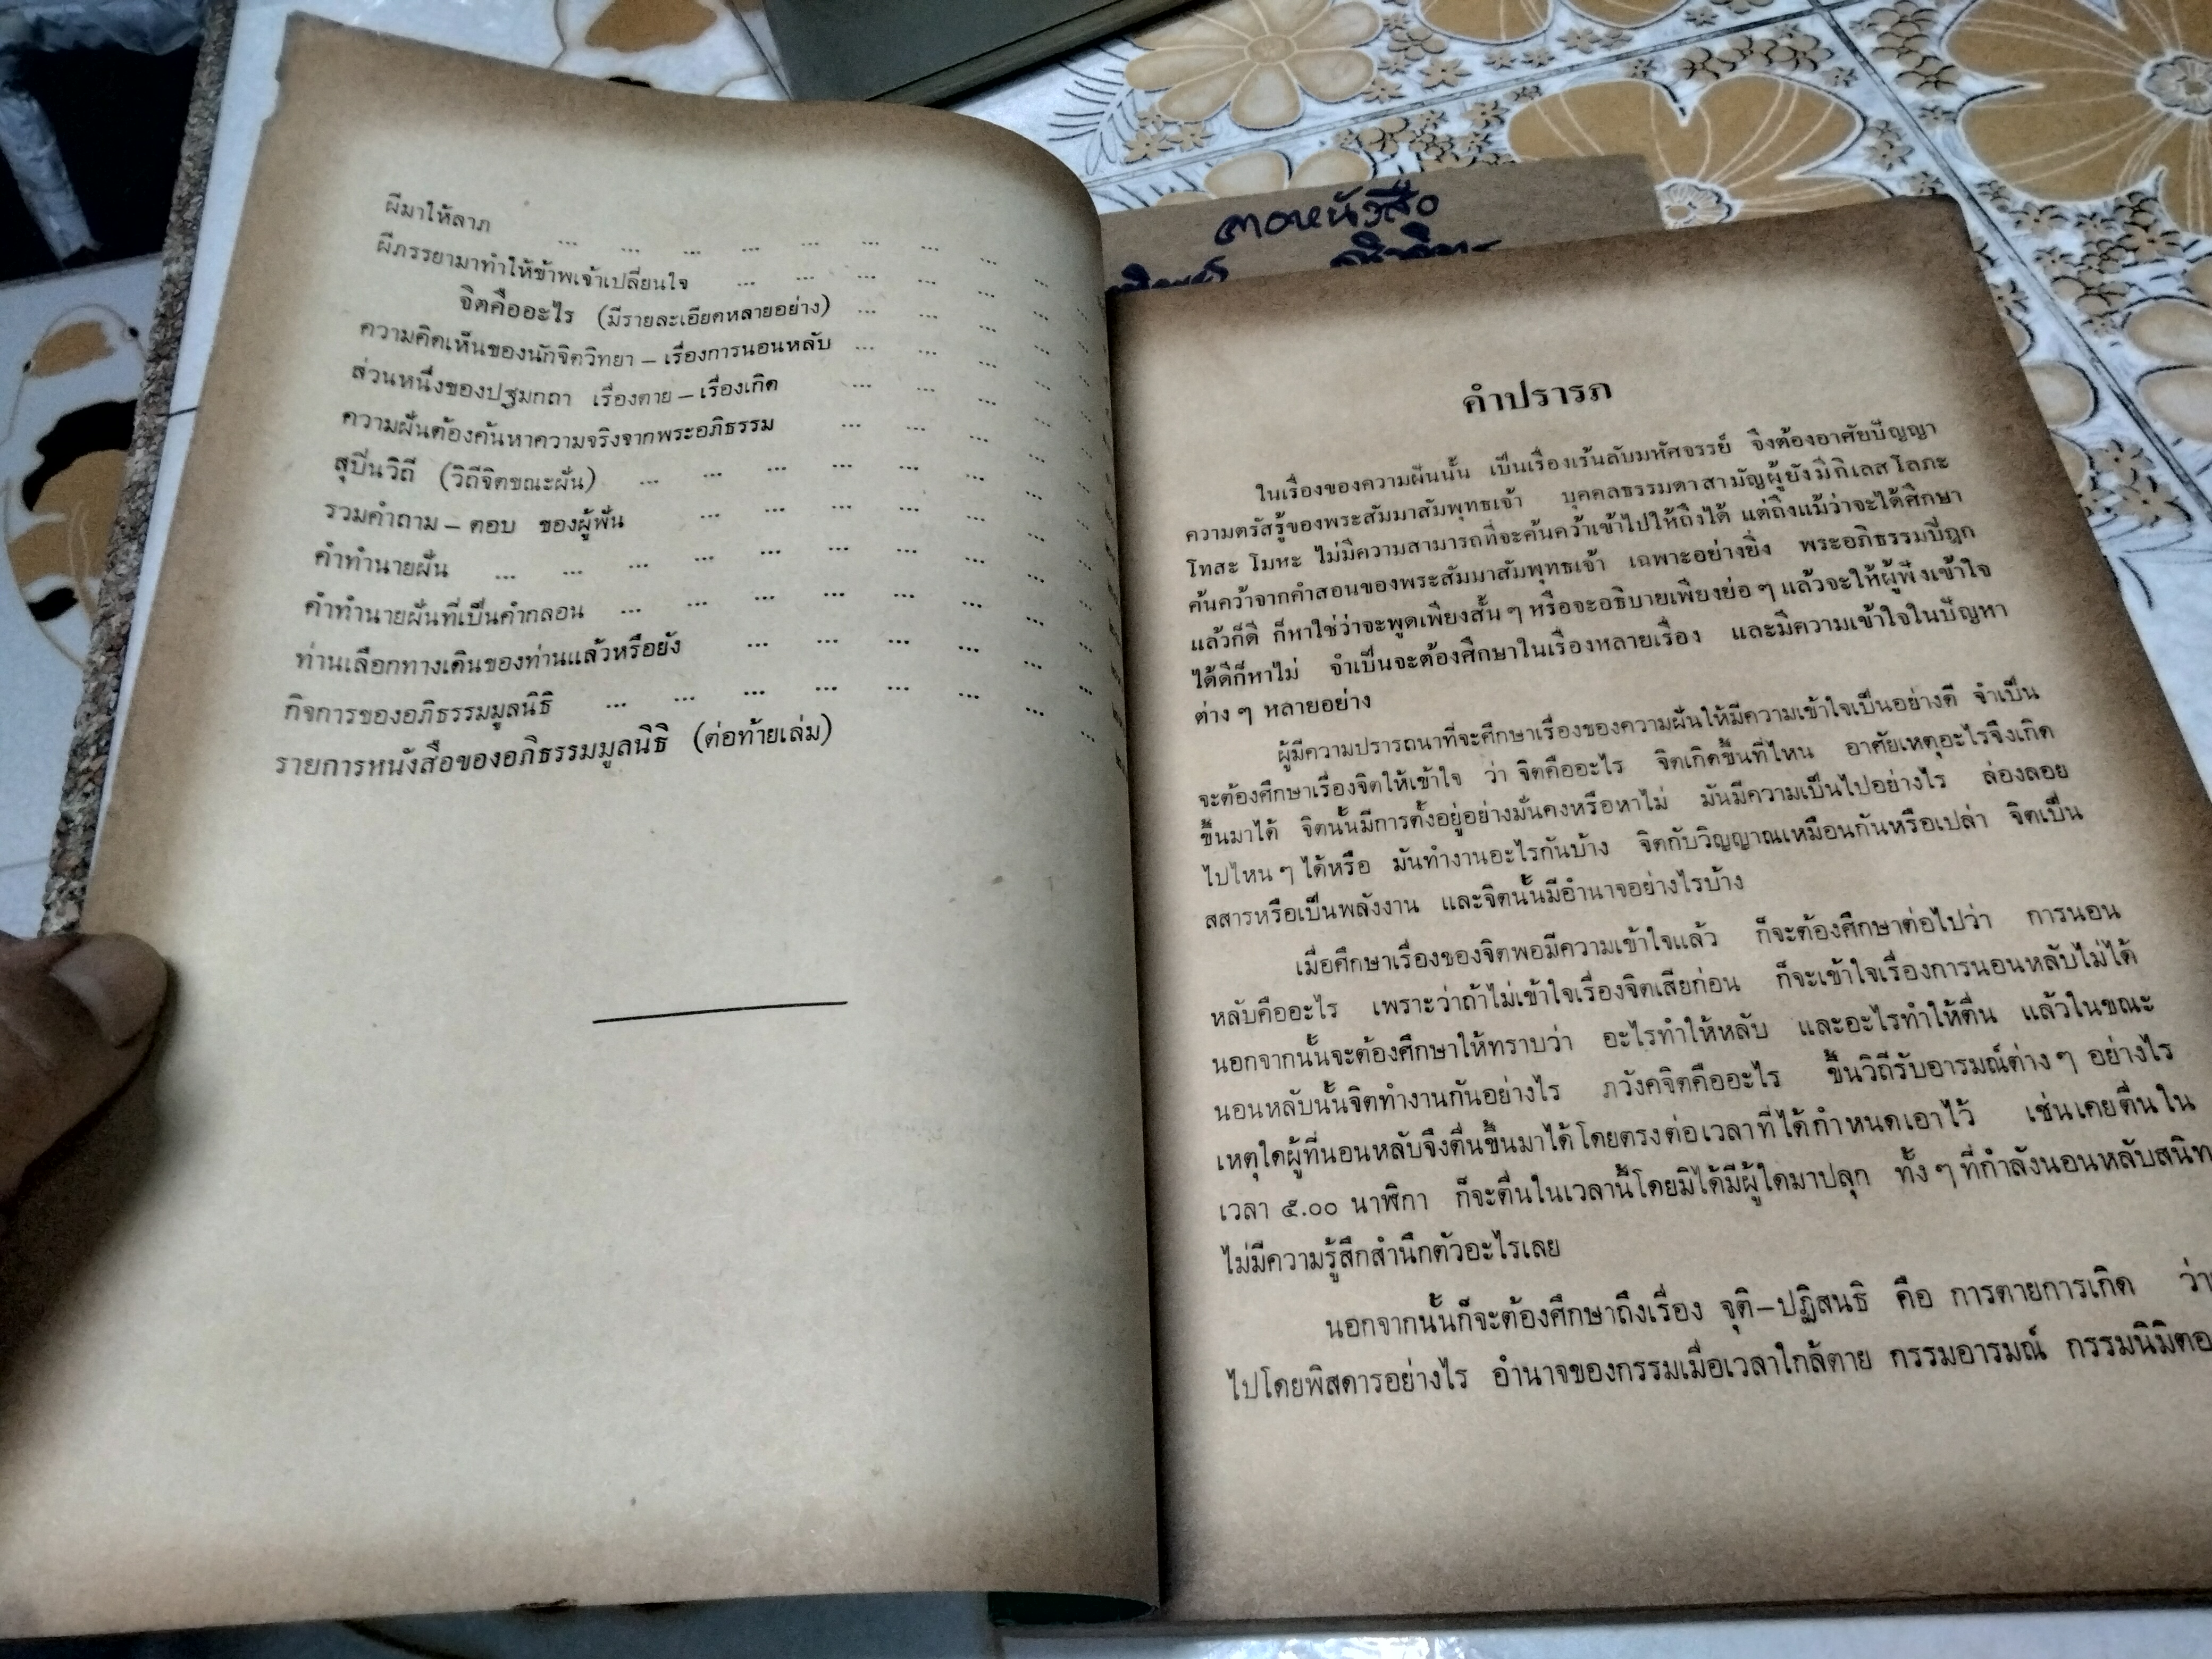 ผีมาให้ลาภ ... ... ... ... ... ... ... ... ...
ผีภรรยามาทำให้ข้าพเจ้าเปลี่ยนใจ ... ... ... ... ... ...
จิตคืออะไร (มีรายละเอียดหลายอย่าง) ... ... ... ...
ความคิดเห็นของนักจิตวิทยา – เรื่องการนอนหลับ ... ... ... ...
ส่วนหนึ่งของปฐมกถา เรื่องตาย – เรื่องเกิด ... ... ... ...
ความฝันต้องค้นหาความจริงจากพระอภิธรรม ... ... ... ...
สุบินวิถี (วิถีจิตขณะฝัน) ... ... ... ... ... ... ...
รวมคำถาม – ตอบ ของผู้ฟัง ... ... ... ... ... ...
คำทำนายฝัน ... ... ... ... ... ... ... ... ...
คำทำนายฝันที่เป็นคำกลอน ... ... ... ... ... ... ...
ท่านเลือกทางเดินของท่านแล้วหรือยัง ... ... ... ... ... ...
กิจการของอภิธรรมมูลนิธิ ... ... ... ... ... ... ... ...
รายการหนังสือของอภิธรรมมูลนิธิ (ต่อท้ายเล่ม)
คำปรารภ
ในเรื่องของความฝันนั้น เป็นเรื่องเร้นลับมหัศจรรย์ จึงต้องอาศัยปัญญา
ความตรัสรู้ของพระสัมมาสัมพุทธเจ้า บุคคลธรรมดาสามัญผู้ยังมีกิเลสโลภะ
โทสะ โมหะ ไม่มีความสามารถที่จะค้นคว้าเข้าไปให้ถึงได้ แต่ถึงแม้ว่าจะได้ศึกษา
ค้นคว้าจากคำสอนของพระสัมมาสัมพุทธเจ้า เฉพาะอย่างยิ่ง พระอภิธรรมปิฎก
แล้วก็ดี ก็หาใช่ว่าจะพูดเพียงสั้น ๆ หรือจะอธิบายเพียงย่อ ๆ แล้วจะให้ผู้ฟังเข้าใจ
ได้ดีก็หาไม่ จำเป็นจะต้องศึกษาในเรื่องหลายเรื่อง และมีความเข้าใจในปัญหา
ต่าง ๆ หลายอย่าง
ผู้มีความปรารถนาที่จะศึกษาเรื่องของความฝันให้มีความเข้าใจเป็นอย่างดี จำเป็น
จะต้องศึกษาเรื่องจิตให้เข้าใจ ว่า จิตคืออะไร จิตเกิดขึ้นที่ไหน อาศัยเหตุอะไรจึงเกิด
ขึ้นมาได้ จิตนั้นมีการตั้งอยู่อย่างมั่นคงหรือหาไม่ มันมีความเป็นไปอย่างไร ล่องลอย
ไปไหน ๆ ได้หรือ มันทำงานอะไรกันบ้าง จิตกับวิญญาณเหมือนกันหรือเปล่า จิตเป็น
สสารหรือเป็นพลังงาน และจิตนั้นมีอำนาจอย่างไรบ้าง
เมื่อศึกษาเรื่องของจิตพอมีความเข้าใจแล้ว ก็จะต้องศึกษาต่อไปว่า การนอน
หลับคืออะไร เพราะว่าถ้าไม่เข้าใจเรื่องจิตเสียก่อน ก็จะเข้าใจเรื่องการนอนหลับไม่ได้
นอกจากนั้นจะต้องศึกษาให้ทราบว่า อะไรทำให้หลับ และอะไรทำให้ตื่น แล้วในขณะ
นอนหลับนั้นจิตทำงานกันอย่างไร ภวังคจิตคืออะไร ขึ้นวิถีรับอารมณ์ต่าง ๆ อย่างไร
เหตุใดผู้ที่นอนหลับจึงตื่นขึ้นมาได้โดยตรงต่อเวลาที่ได้กำหนดเอาไว้ เช่นเคยตื่นใน
เวลา ๕.๐๐ นาฬิกา ก็จะตื่นในเวลานี้โดยมิได้มีผู้ใดมาปลุก ทั้ง ๆ ที่กำลังนอนหลับสนิท
ไม่มีความรู้สึกสำนึกตัวอะไรเลย
นอกจากนั้นก็จะต้องศึกษาถึงเรื่อง จุติ–ปฏิสนธิ คือ การตายการเกิด ว่า
ไปโดยพิสดารอย่างไร อำนาจของกรรมเมื่อเวลาใกล้ตาย กรรมอารมณ์ กรรมนิมิตอ